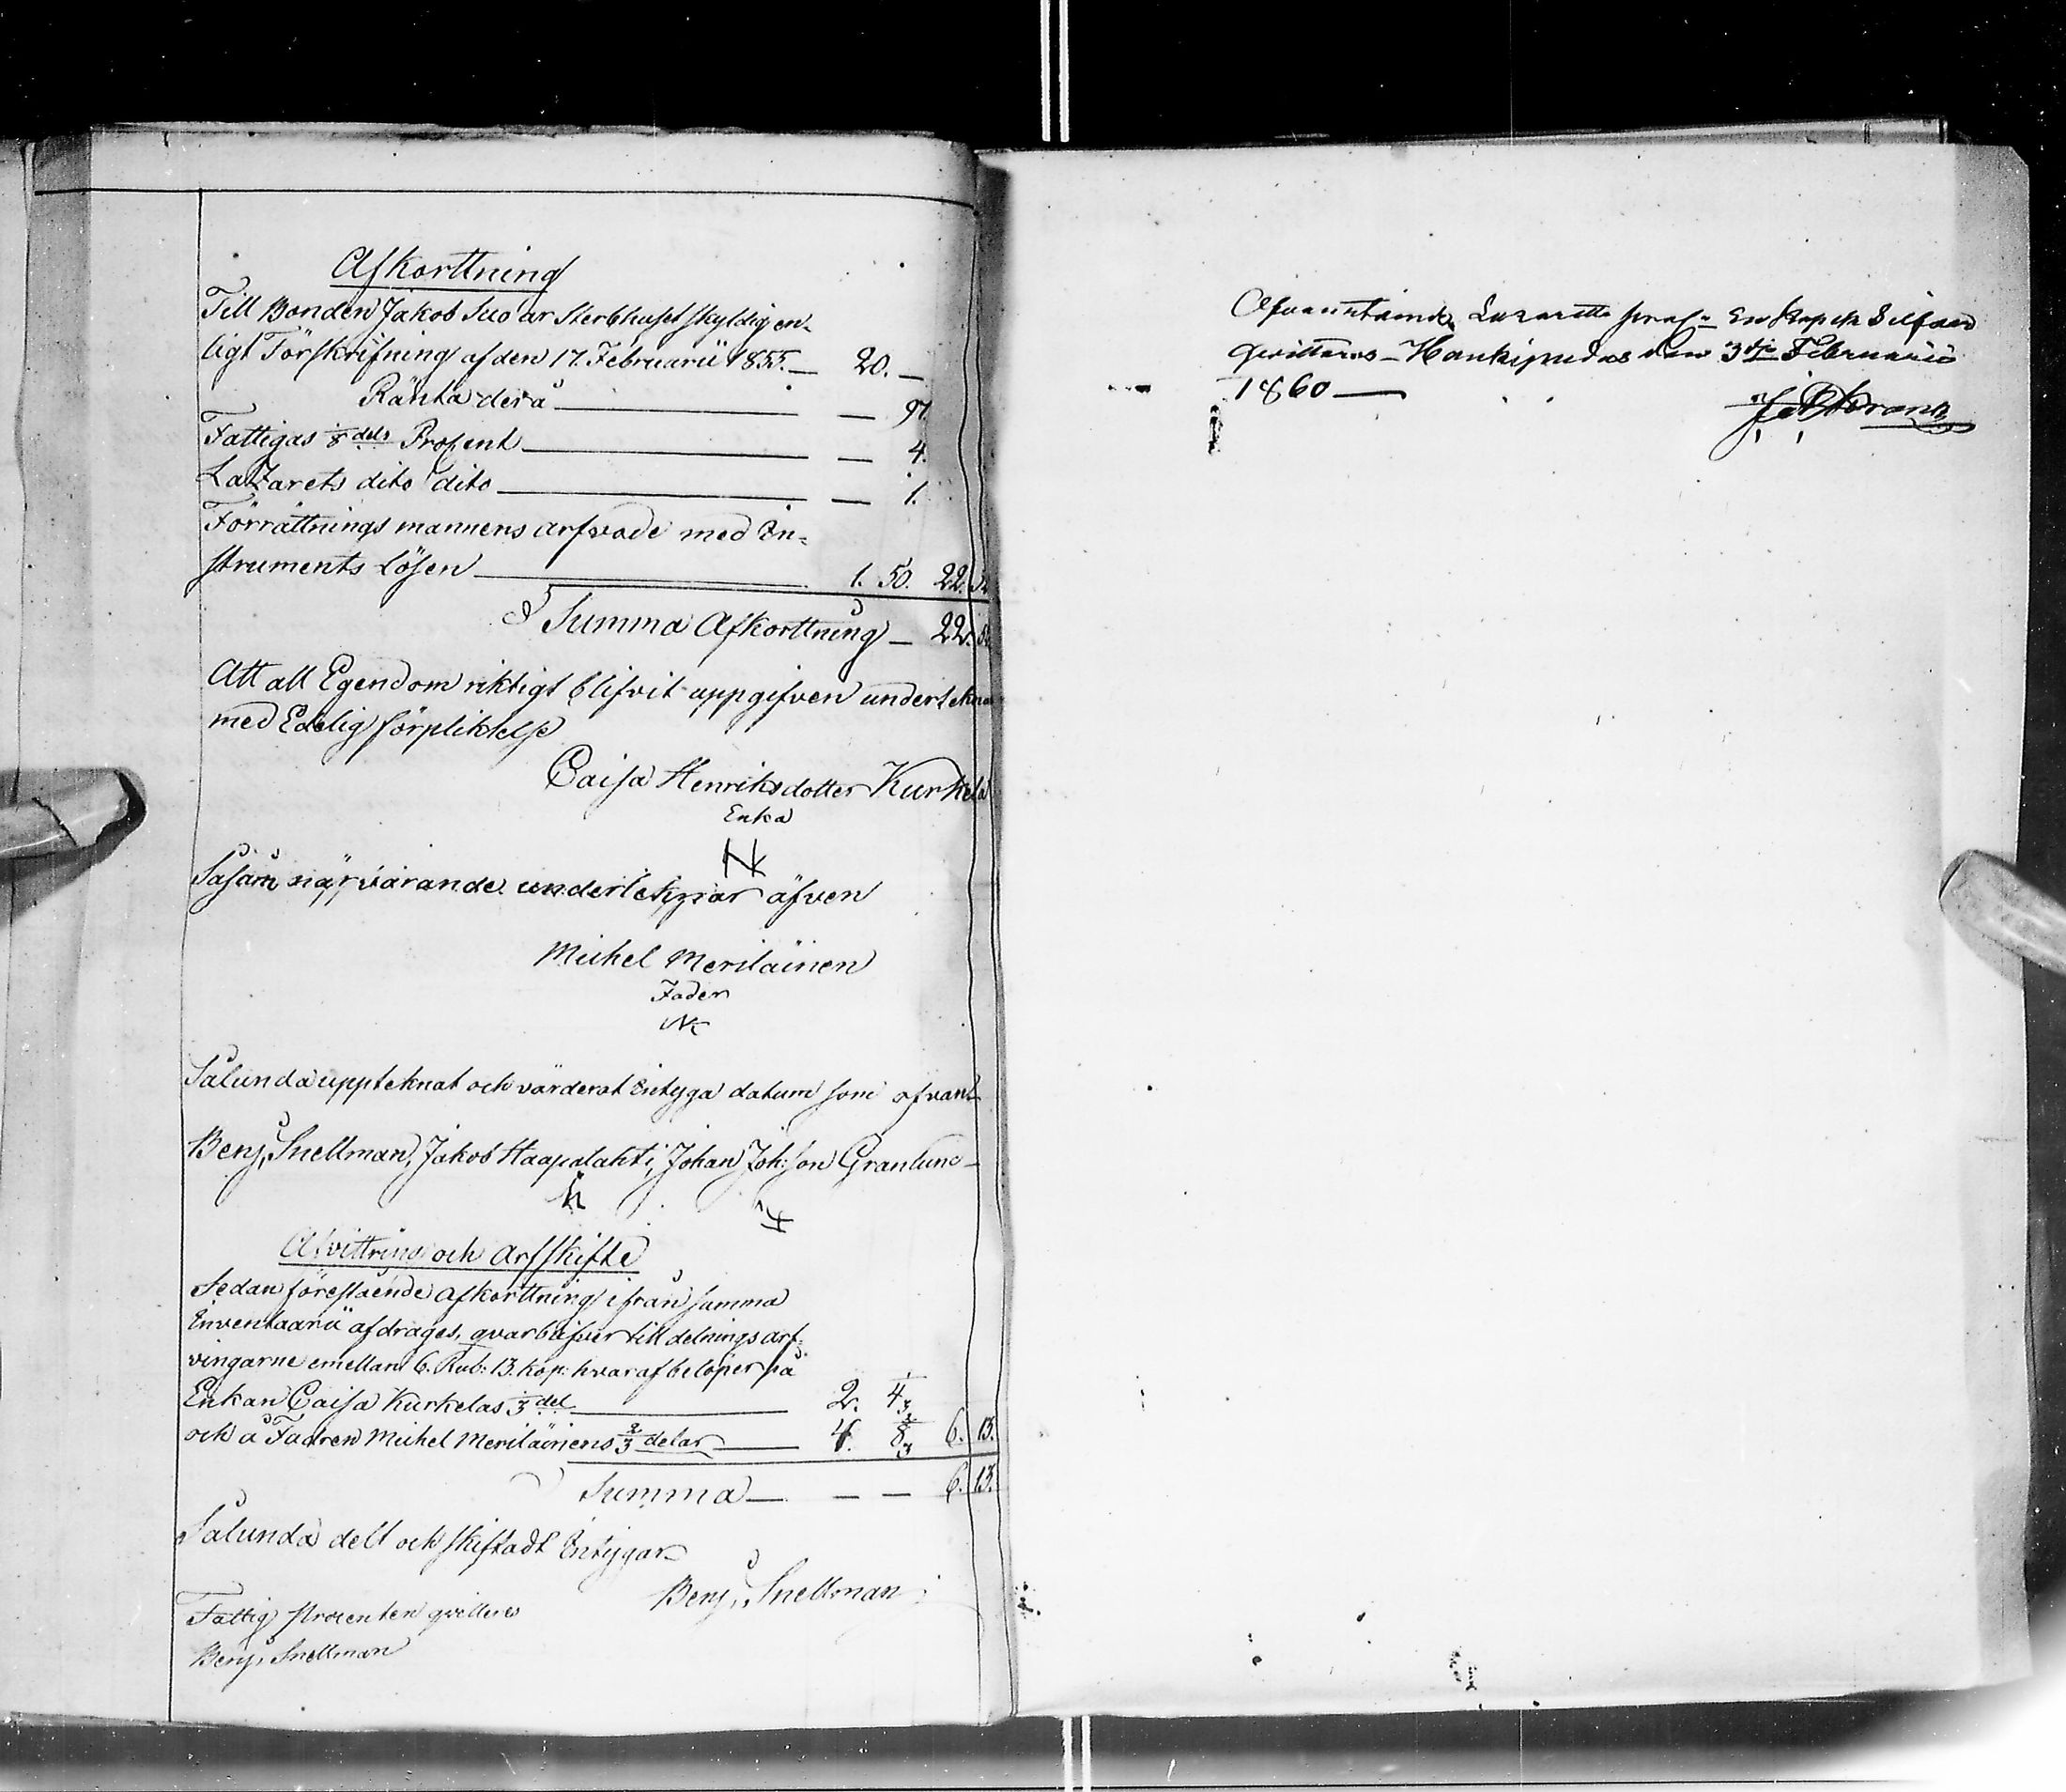 Afkorttning
Till Bonden Jakob Suo är Sterbhuset skyldig en-
ligt Förskrifning af den 17. Februarii 1855. — 20. —
Ränta derå — — 97.
Fattigas 1/8 dels Prosent — — 4.
Latzarets dito dito — — 1.
Förrättnings mannens arfvode med In-
struments Lösen — 1. 50. 22. 52
Summa Afkorttning — 22. 52
Att all Egendom riktigt blifvit uppgifven underteknar
med Edelig förpliktelse
Caisa Henriksdotter Kurkela
Enka
Såsom närvarande underteknar äfven
Michel Meriläinen
Fader
Sålunda uppteknat och värderat Intyga datum som ofvan
Benj. Snellman, Jakob Haapalahti, Johan Joh:son Granlund
Afvittring och arfskifte
Sedan förestående afkorttning ifrån summa
Inventaarii afdrages, qvarblifver till delnings arf-
vingarne emellan 6. Rub: 13. kop: hvaraf belöper på
Enkan Caisa Kurkelas 1/3 del — 2. 4 1/3
och å Fadren Michel Meriläinens 2/3 delar — 4. 8 2/3 6. 13.
Summa — — — 6. 13.
Sålunda delt och skiftadt Intygar
Benj. Snellman
Fattig prosenten qvitteres
Benj. Snellman
Lazaretts En kopek Silfver
qvitteras — Haukipudas den 3dje Februarii
1860 —